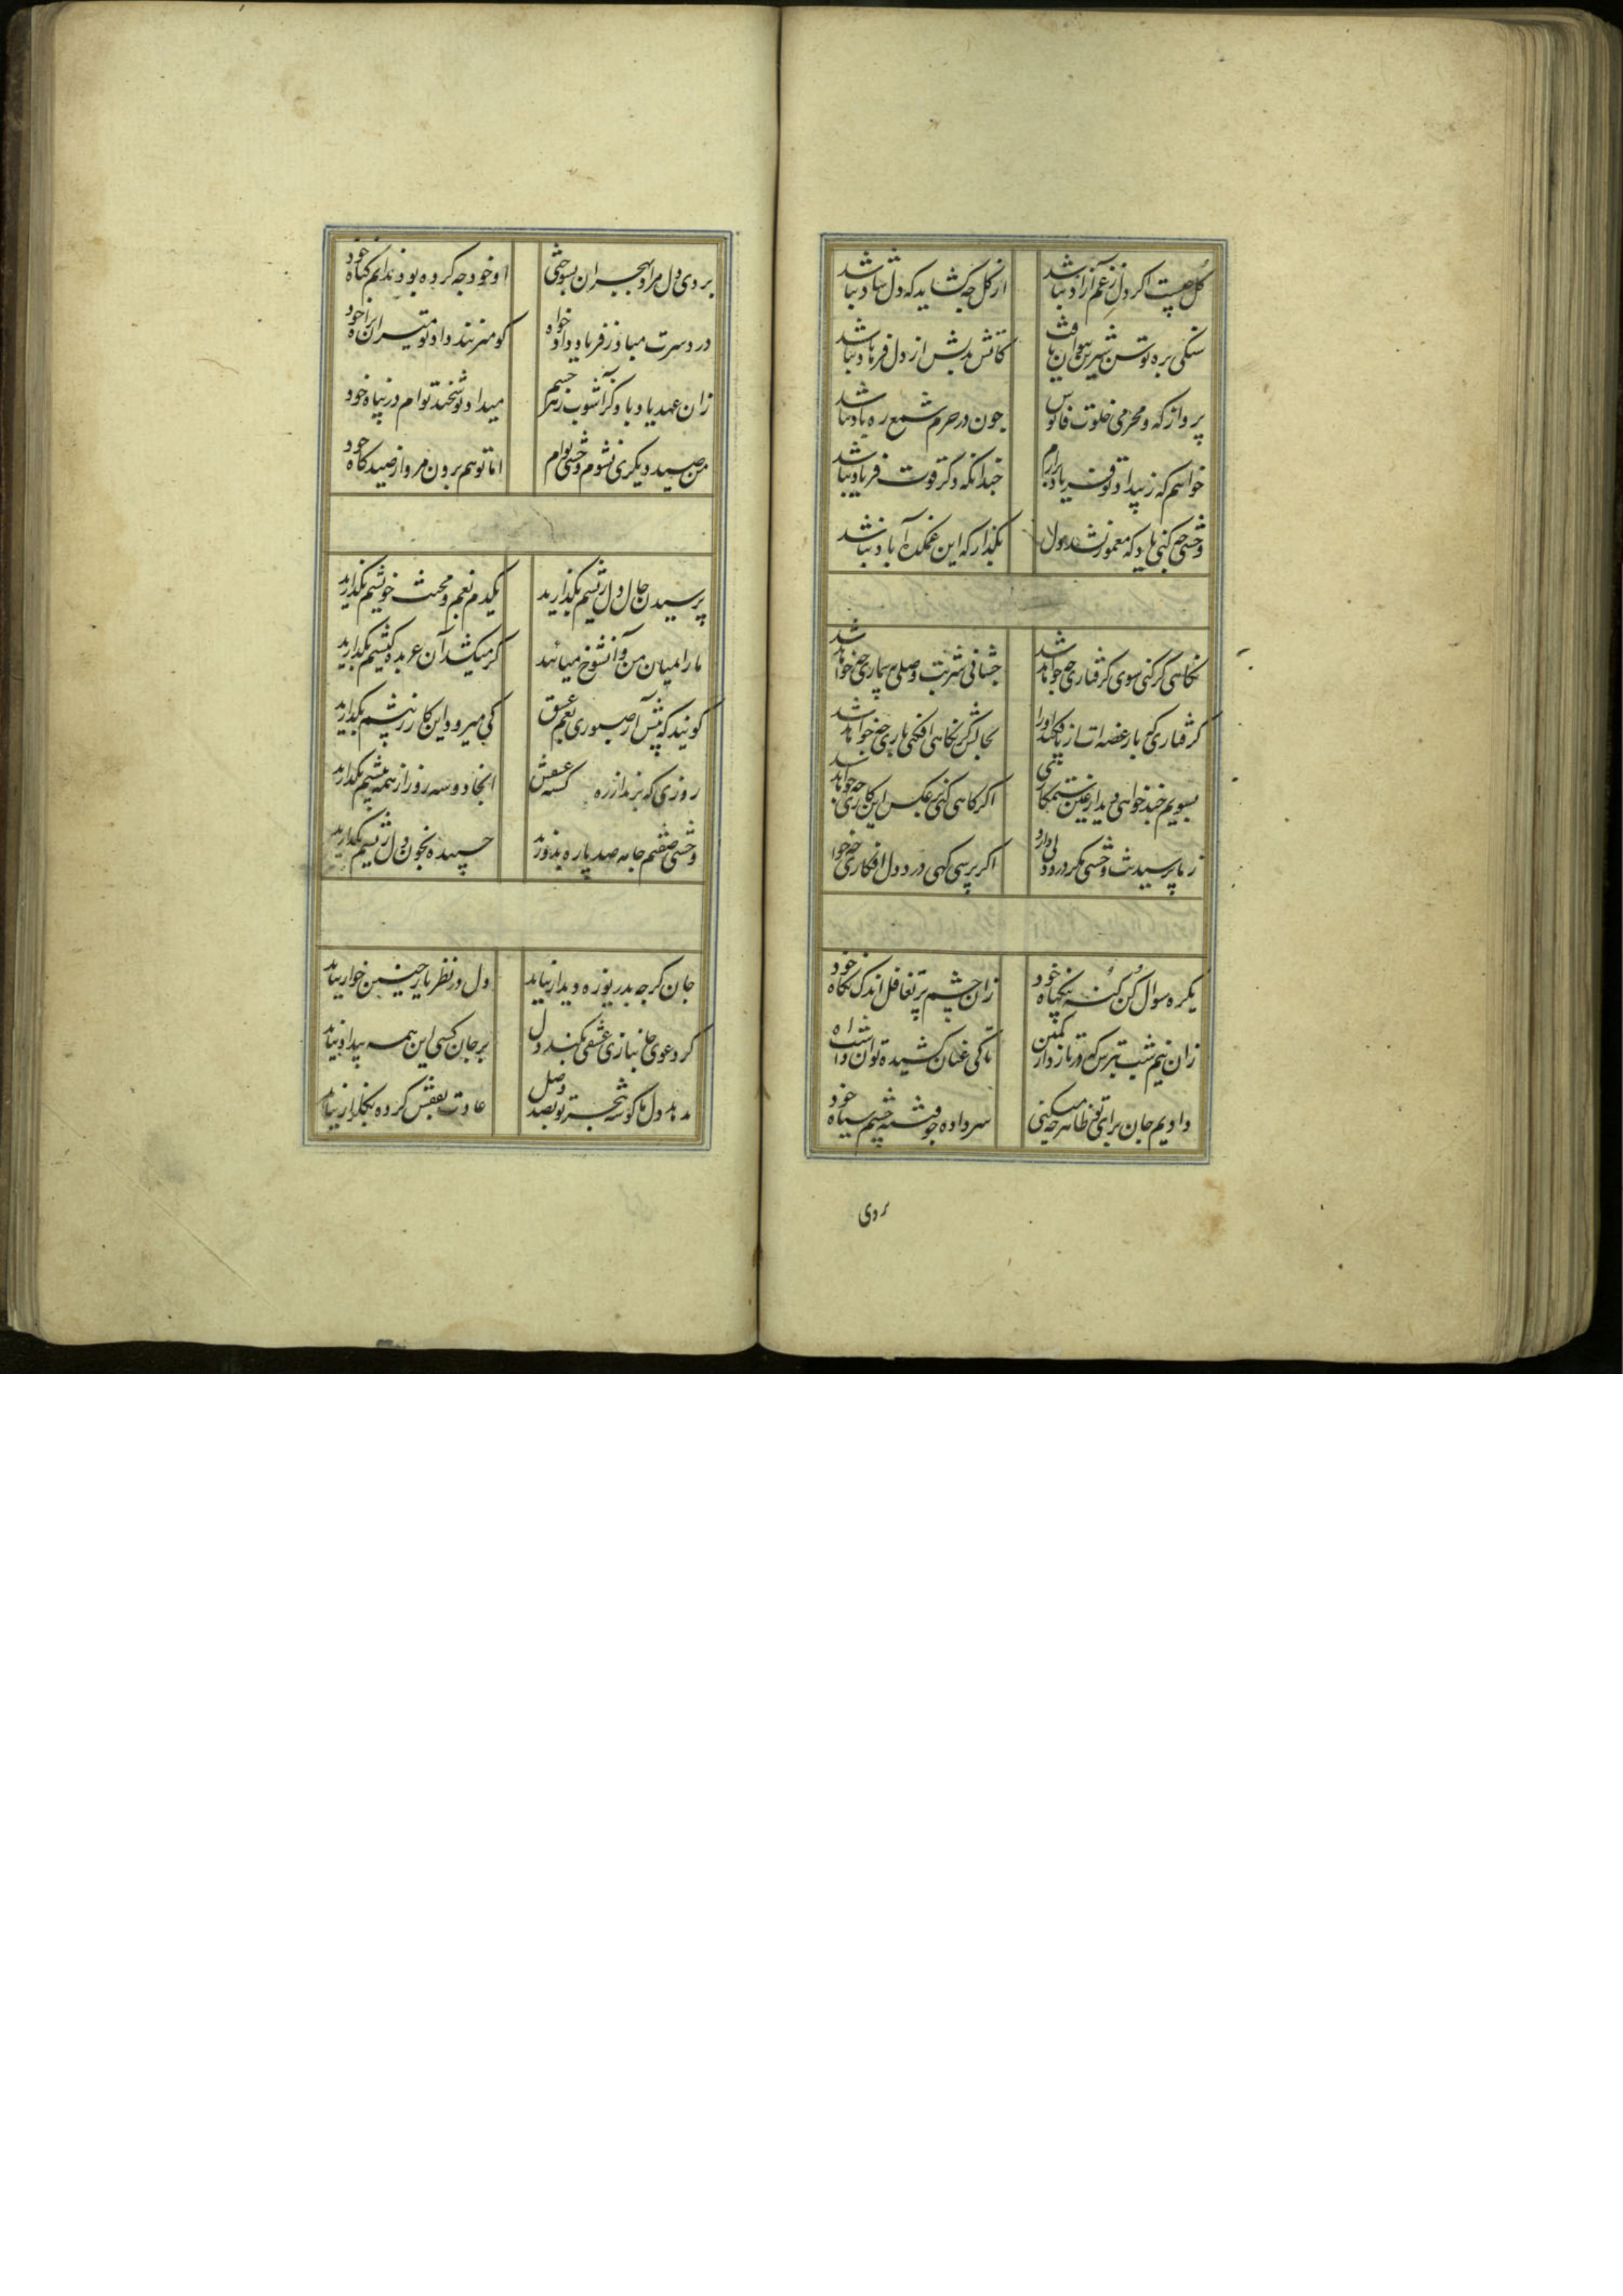 گل چیست اگر دل ز غم آزاد نباشد
از گل چه گشاید که دل شاد نباشد
سنگی بره توسن شیرین نتوان یافت
کاتش بدلش از دل فرهاد نباشد
پروانه که و محرمی خلوت فانوس
چون در حرم شمع ره باد نباشد
خواهم که ز بیداد تو فریاد برآرم
چندانکه دگر قوت فریاد نباشد
وحشی چه کنی یاد که معمور نشد دل
بگذار که این غمکده آباد نباشد
نگاهی گر کنی سوی گرفتاری چه خواهد شد
چشانی شربت وصلی به بیماری چه خواهد شد
گرفتاری که بار غصه ات از پا فکند او را
بحالش گر نگاهی افکنی باری چه خواهد شد
بسویم چند خواهی دید از عین ستمکاری
اگر گاهی کنی بر عکس این کاری چه خواهد شد
ز ما پرسیدنت وحشی مگر درد دلی دارد
اگر پرسی گهی درد دل افگاری چه خوا
یکره سوال کن گنه بیگناه خود
زان چشم پر تغافل اندک نگاه خود
زان نیم شب بترس که در تازد از کمین
تا کی عنان کشیده توان داشت آه
دادیم جان برای تو ظاهر چه میکنی
سر داده چو فتنه چشم سیاه خود
بردی
بردی دل مرا و بهجران بسوختی
او خود چه کرده بود ندانم گناه خود
درد سرت مباد ز فریاد دادخواه
گو میزنند داد تو میران براه خود
زان عهد یاد باد کز آشوب زهر چشم
میداد نوشخند توام در پناه خود
من صید دیگری نشوم وحشی توام
اما تو هم برون مرو از صیدگاه خود
پرسیدن حال دل ریشم بگذارید
یکدم بغم و محنت خویشم بگذارید
یاران بمیان من و آنشوخ میائید
گر میکشد آن عربده کیشم بگذارید
گویند که پیش آر صبوری بغم عشق
کی میرود این کار ز پیشم بگذارید
روزی که برند از ره عشقش
اینجا دو سه روز از همه بیشم بگذارید
وحشی صفتم جامه صد پاره بدوزید
چسبیده بخون دل ریشم بگذارید
جان گرچه بدریوزه دیدار نیاید
دل در نظر یار چنین خوار نیاید
گر دعوی جانبازی عشقی نکند دل
بر جان کسی این همه بیداد نیاید
دل ما گوشه هجر تو بصد وصل
عادت بقفس کرده بگلزار نیاید